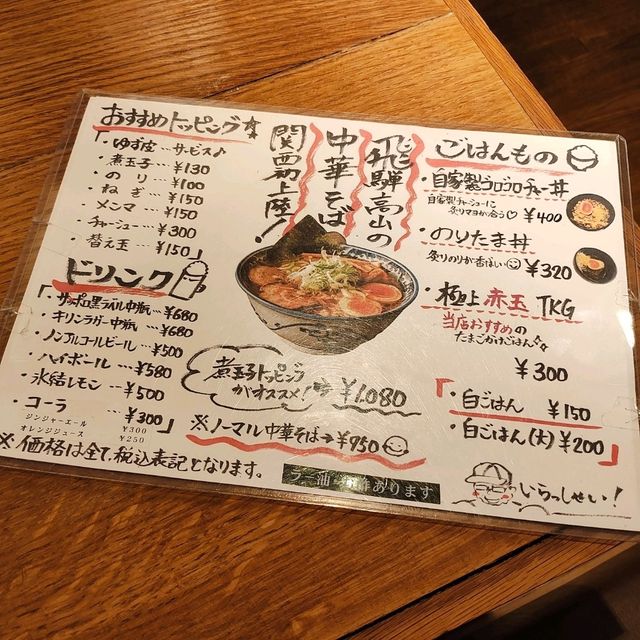 おすすめトッピング☆
「・ゆず皮…サービス♪
・煮玉子…¥130
・のり…¥100
・ねぎ…¥150
・メンマ…¥150
・チャーシュー…¥300
・替え玉…¥150」
ドリンク
「・サッポロ黒ラベル中瓶…¥680
・キリンラガー中瓶…¥680
・ノンアルコールビール…¥500
・ハイボール…¥580
・氷結レモン…¥500
・コーラ…¥300
ジンジャーエール…¥300
オレンジジュース…¥250」
※価格は全て税込表記となります。
飛騨高山の
中華そば
関西初上陸!
煮玉子トッピング
がオススメ!→¥1.080
※ノーマル中華そば→¥950
ラー油
あります
ごはんもの
・自家製ゴロゴロチャー丼
自家製チャーシューに
炙りマヨが合う♡ ¥400
・のりたま丼
炙りのりが香ばしい ¥320
・極上赤玉TKG
当店おすすめの
たまごかけごはん☆
¥300
「・白ごはん ¥150
・白ごはん(大)¥200」
いらっしゃい!